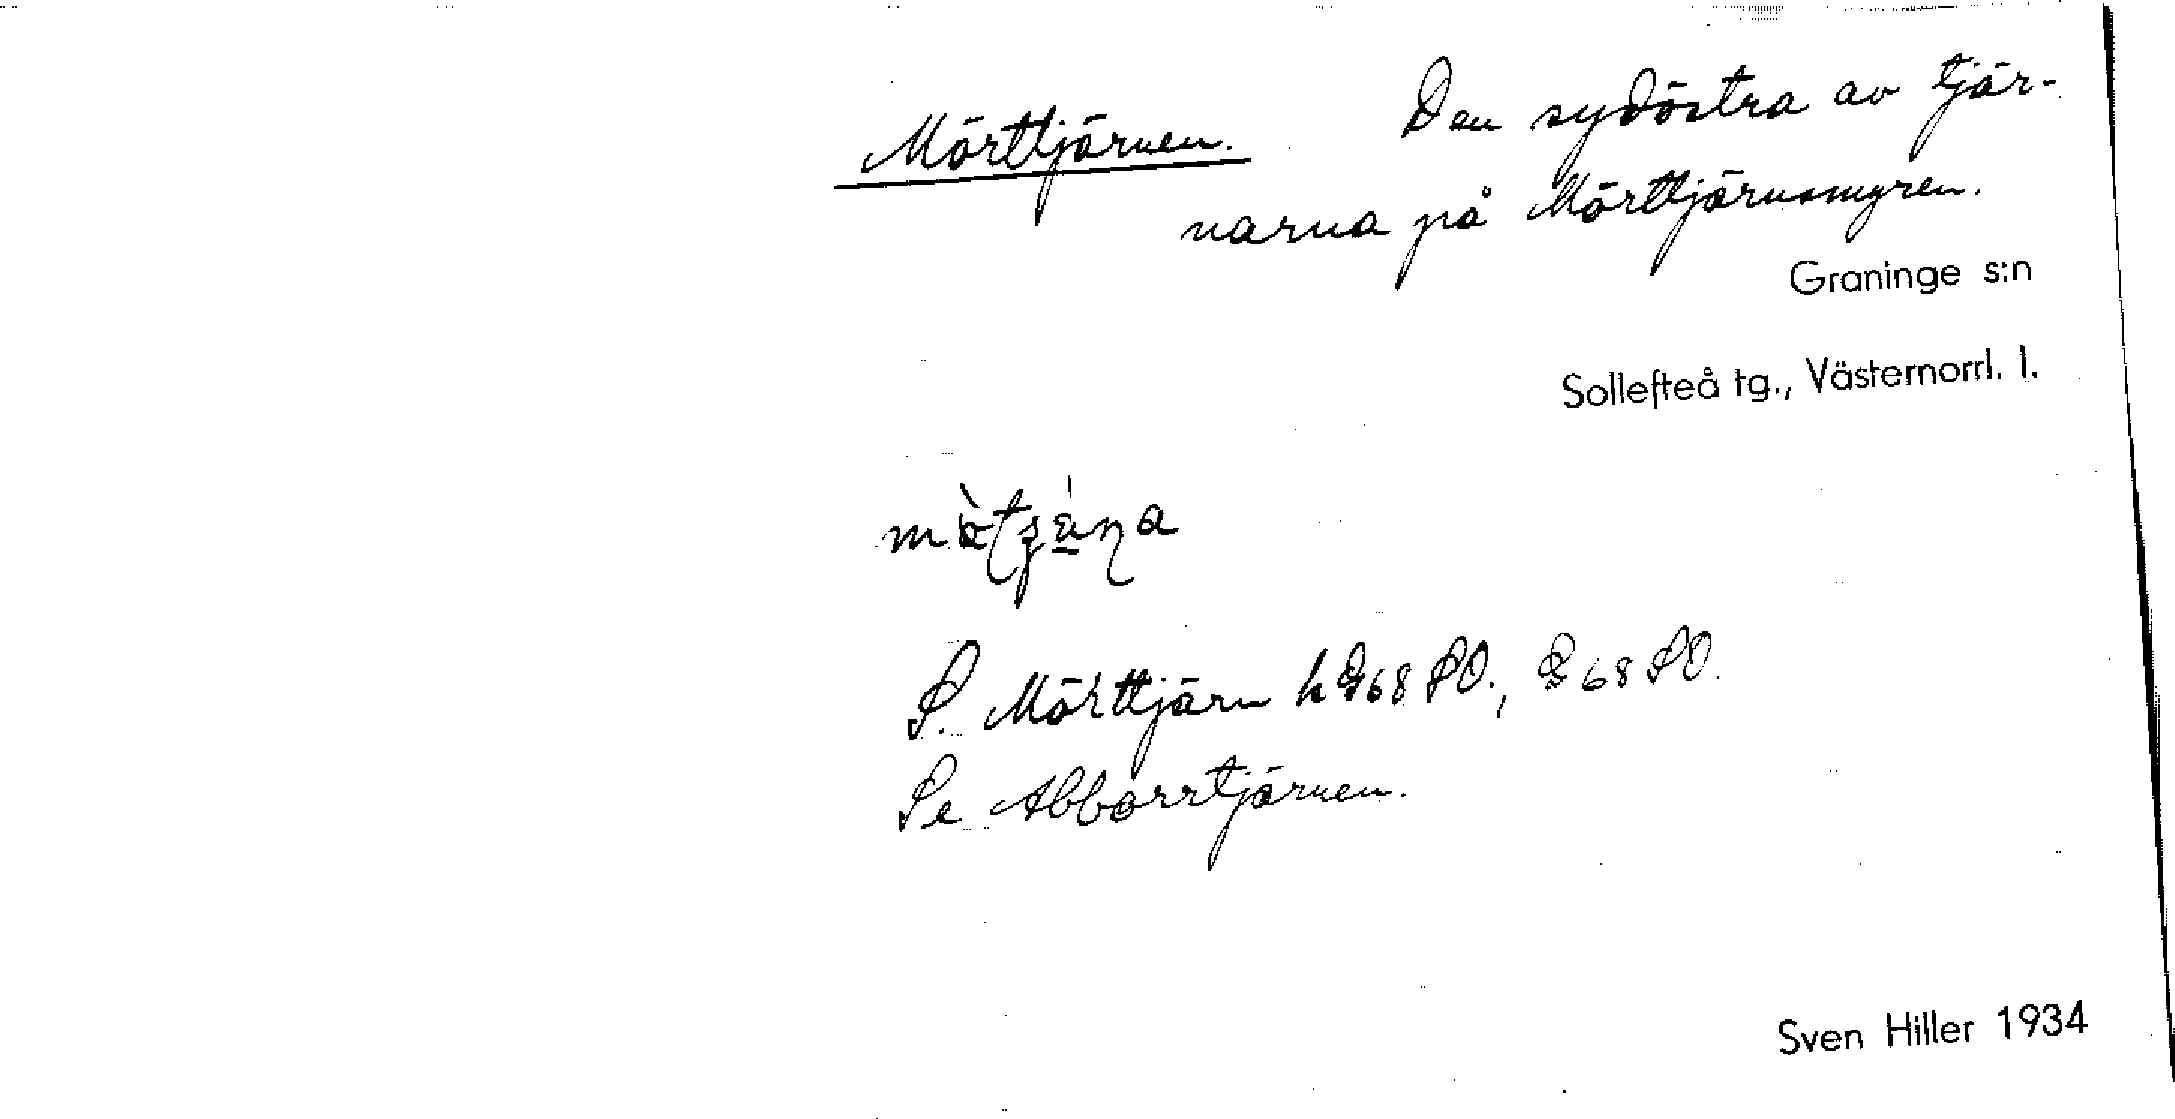 Mörttjärnen. Den sydöstra av tjär-
narna på Mörttjärnsmyren.
Graninge s:n
Sollefteå tg., Västernorrl. l.
S. Mörttjärn h G68 SO., G 68 SO.
Se Abborrtjärnen.
Sven Hiller 1934